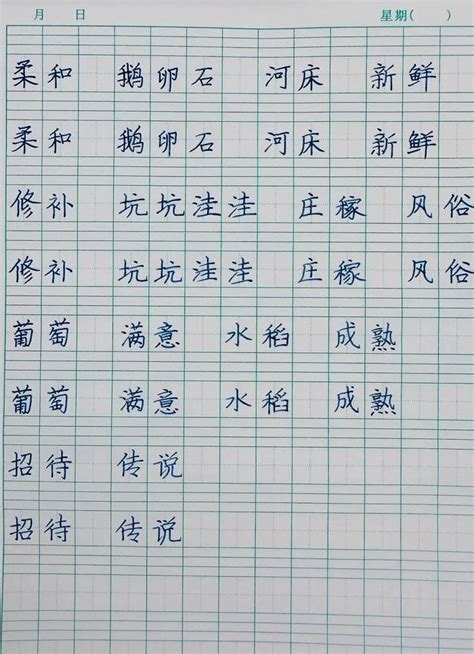 月 日 星期( )
柔和 鹅卵石 河床 新鲜
柔和 鹅卵石 河床 新鲜
修补 坑坑洼洼 庄稼 风俗
修补 坑坑洼洼 庄稼 风俗
葡萄 满意 水稻 成熟
葡萄 满意 水稻 成熟
招待 传说
招待 传说